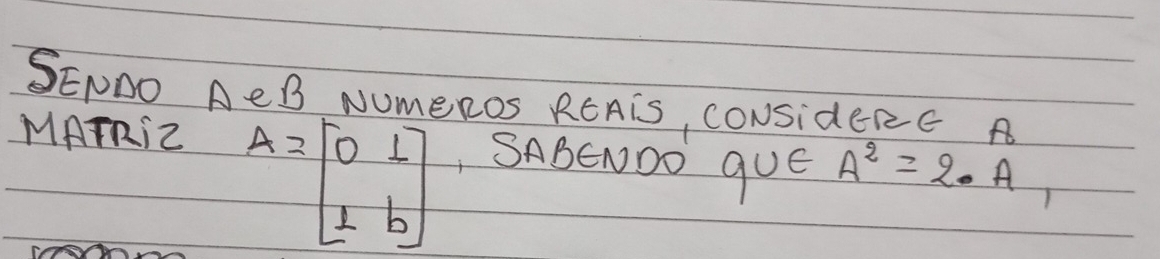 SENDO A e B NUMEROS REAIS, CONSIDERE A
MATRIZ A = [0 1], SABENDO QUE A² = 2. A,
[1 b]